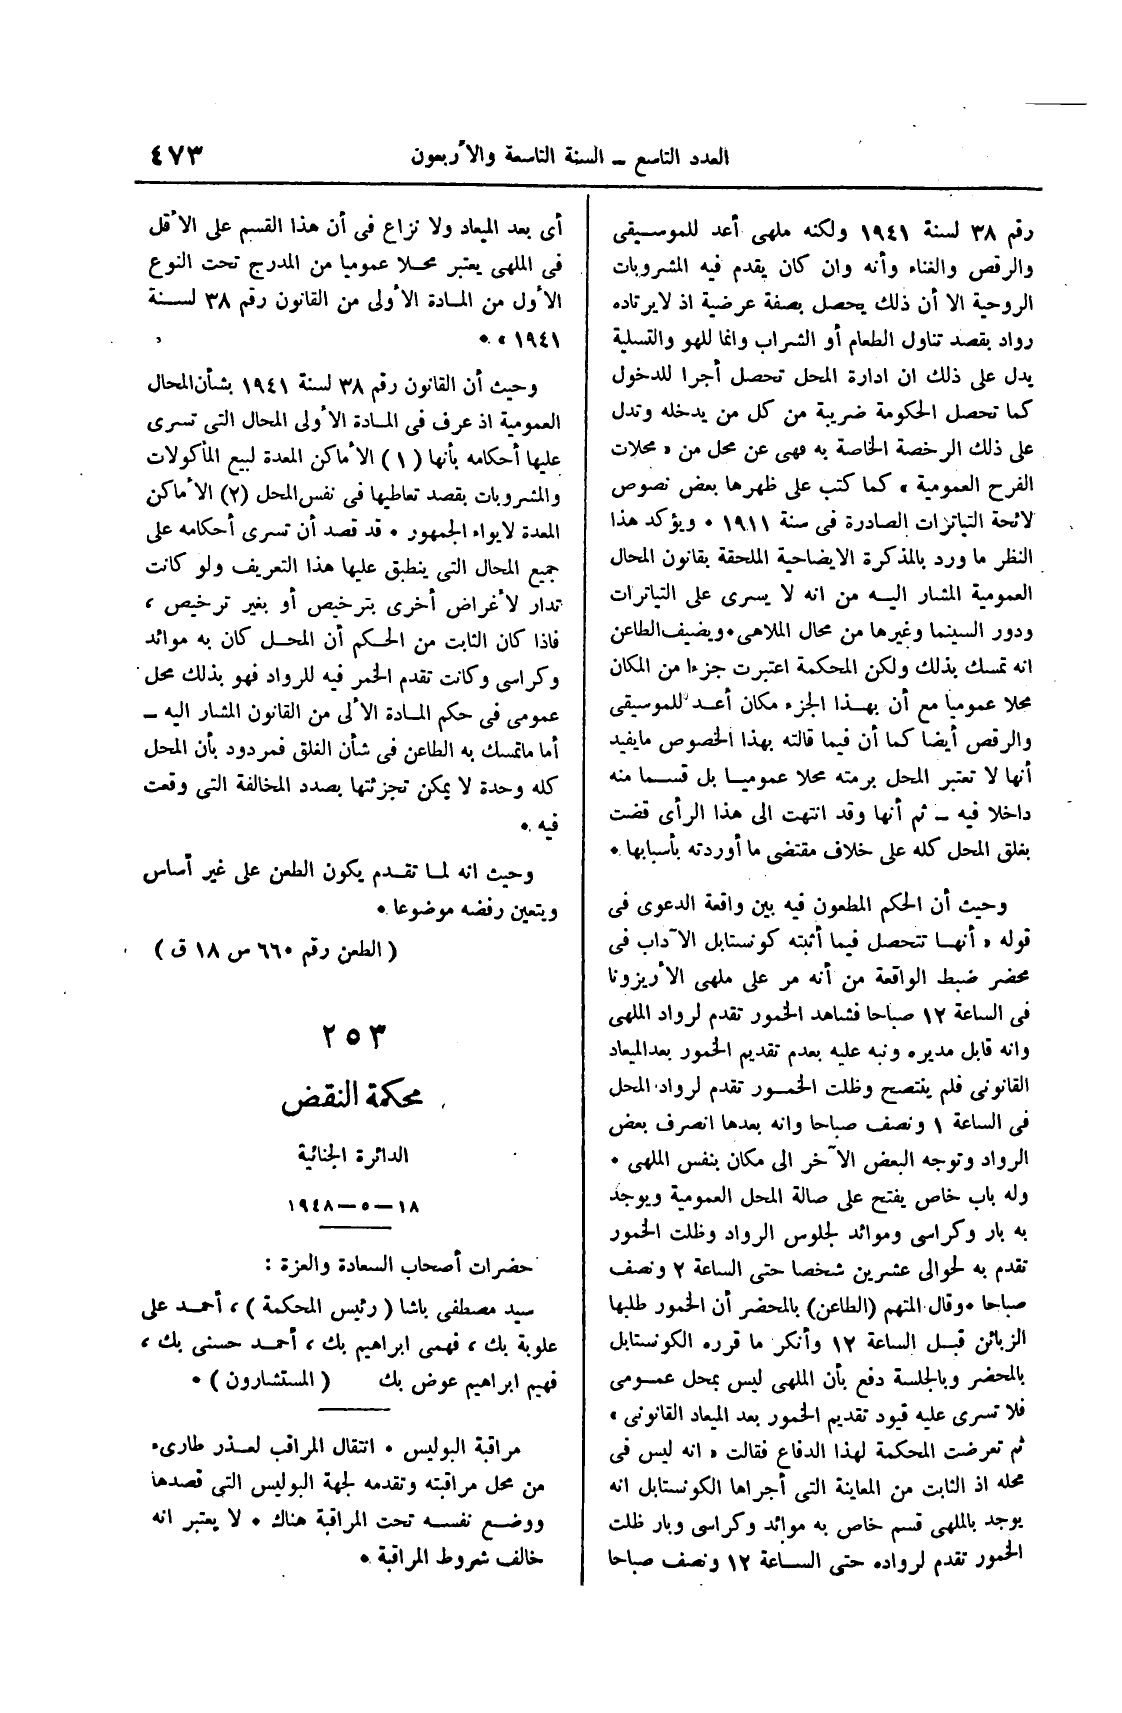 العدد التاسع ــ السنة التاسعة والأربعون
٤٧٣
رقم ٣٨ لسنة ١٩٤١ ولكنه ملهى أعد للموسيقى
والرقص والغناء وأنه وان كان يقدم فيه المشروبات
الروحية الا أن ذلك يحصل بصفة عرضية اذ لايرتاده
رواد بقصد تناول الطعام أو الشراب وانما للهو والتسلية
يدل على ذلك ان ادارة المحل تحصل أجرا للدخول
كما تحصل الحكومة ضريبة من كل من يدخله وتدل
على ذلك الرخصة الخاصة به فهى عن محل من « محلات
الفرح العمومية » كما كتب على ظهرها بعض نصوص
لائحة التياترات الصادرة فى سنة ١٩١١ ٠ ويؤكد هذا
النظر ما ورد بالمذكرة الايضاحية الملحقة بقانون المحال
العمومية المشار اليه من انه لا يسرى على التياترات
ودور السينما وغيرها من محال الملاهى ٠ ويضيف الطاعن
انه تمسك بذلك ولكن المحكمة اعتبرت جزءا من المكان
محلا عموميا مع أن بهذا الجزء مكان أعد للموسيقى
والرقص أيضا كما أن فيما قالته بهذا الخصوص مايفيد
أنها لا تعتبر المحل برمته محلا عموميا بل قسما منه
داخلا فيه ــ ثم أنها وقد انتهت الى هذا الرأى قضت
بغلق المحل كله على خلاف مقتضى ما أوردته بأسبابها ٠
وحيث أن الحكم المطعون فيه بين واقعة الدعوى فى
قوله « أنها تتحصل فيما أثبته كونستابل الآداب فى
محضر ضبط الواقعة من أنه مر على ملهى الأريزونا
فى الساعة ١٢ صباحا فشاهد الخمور تقدم لرواد الملهى
وانه قابل مديره ونبه عليه بعدم تقديم الخمور بعدالميعاد
القانونى فلم ينتصح وظلت الخمور تقدم لرواد المحل
فى الساعة ١ ونصف صباحا وانه بعدها انصرف بعض
الرواد وتوجه البعض الآخر الى مكان بنفس الملهى ٠
وله باب خاص يفتح على صالة المحل العمومية ويوجد
به بار وكراسى وموائد لجلوس الرواد وظلت الخمور
تقدم به لحوالى عشرين شخصا حتى الساعة ٢ ونصف
صباحا ٠ وقال المتهم (الطاعن) بالمحضر أن الخمور طلبها
الزبائن قبل الساعة ١٢ وأنكر ما قرره الكونستابل
بالمحضر وبالجلسة دفع بأن الملهى ليس بمحل عمومى
فلا تسرى عليه قيود تقديم الخمور بعد الميعاد القانونى »
ثم تعرضت المحكمة لهذا الدفاع فقالت « انه ليس فى
محله اذ الثابت من المعاينة التى أجراها الكونستابل انه
يوجد بالملهى قسم خاص به موائد وكراسى وبار ظلت
الخمور تقدم لرواده حتى الساعة ١٢ ونصف صباحا
أى بعد الميعاد ولا نزاع فى أن هذا القسم على الأقل
فى الملهى يعتبر محلا عموميا من المدرج تحت النوع
الأول من المادة الأولى من القانون رقم ٣٨ لسنة
١٩٤١ » ٠
وحيث أن القانون رقم ٣٨ لسنة ١٩٤١ بشأن المحال
العمومية اذ عرف فى المادة الأولى المحال التى تسرى
عليها أحكامه بأنها ( ١ ) الأماكن المعدة لبيع المأكولات
والمشروبات بقصد تعاطيها فى نفس المحل (٢) الأماكن
المعدة لايواء الجمهور ٠ قد قصد أن تسرى أحكامه على
جميع المحال التى ينطبق عليها هذا التعريف ولو كانت
تدار لأغراض أخرى بترخيص أو بغير ترخيص ،
فاذا كان الثابت من الحكم أن المحل كان به موائد
وكراسى وكانت تقدم الخمر فيه للرواد فهو بذلك محل
عمومى فى حكم المادة الألى من القانون المشار اليه ــ
أما ماتمسك به الطاعن فى شأن الغلق فمردود بأن المحل
كله وحدة لا يمكن تجزئتها بصدد المخالفة التى وقعت
فيه ٠
وحيث انه لما تقدم يكون الطعن على غير أساس
ويتعين رفضه موضوعا ٠
( الطعن رقم ٦٦٠ س ١٨ ق )
٢٥٣
محكمة النقض
الدائرة الجنائية
١٨ــ٥ــ١٩٤٨
حضرات أصحاب السعادة والعزة :
سيد مصطفى باشا ( رئيس المحكمة ) ، أحمد على
علوبة بك ، فهمى ابراهيم بك ، أحمد حسنى بك ،
فهيم ابراهيم عوض بك ( المستشارون ) ٠
مراقبة البوليس ٠ انتقال المراقب لعذر طارىء
من محل مراقبته وتقدمه لجهة البوليس التى قصدها
ووضع نفسه تحت المراقبة هناك ٠ لا يعتبر انه
خالف شروط المراقبة ٠